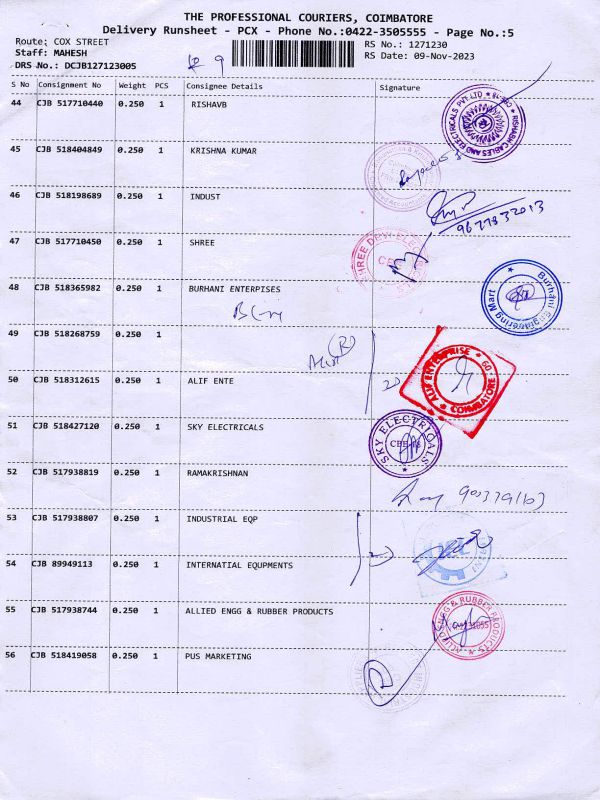 THE PROFESSIONAL COURIERS, COIMBATORE
Delivery Runsheet - PCX - Phone No.:0422-3505555 - Page No.:5
Route: COX STREET
Staff: MAHESH
DRS No.: DCJB127123005
9
RS No.: 1271230
RS Date: 09-Nov-2023
S No Consignment No Weight PCS Consignee Details Signature
44 CJB 517710440 0.250 1 RISHAVB
RISHABH CABLES AND ELECTRICALS PVT LTD CBE-18
45 CJB 518404849 0.250 1 KRISHNA KUMAR
46 CJB 518198689 0.250 1 INDUST
9677832013
47 CJB 517710450 0.250 1 SHREE
SHREE DEVI ELEC
48 CJB 518365982 0.250 1 BURHANI ENTERPISES
Burhani Engineering Mart
49 CJB 518268759 0.250 1
50 CJB 518312615 0.250 1 ALIF ENTE
ALIF ENTERPRISE COIMBATORE
51 CJB 518427120 0.250 1 SKY ELECTRICALS
SKY ELECTRICALS
52 CJB 517938819 0.250 1 RAMAKRISHNAN
53 CJB 517938807 0.250 1 INDUSTRIAL EQP
54 CJB 89949113 0.250 1 INTERNATIAL EQUPMENTS
55 CJB 517938744 0.250 1 ALLIED ENGG & RUBBER PRODUCTS
ALLIED ENGG & RUBBER PRODUCTS
56 CJB 518419058 0.250 1 PUS MARKETING